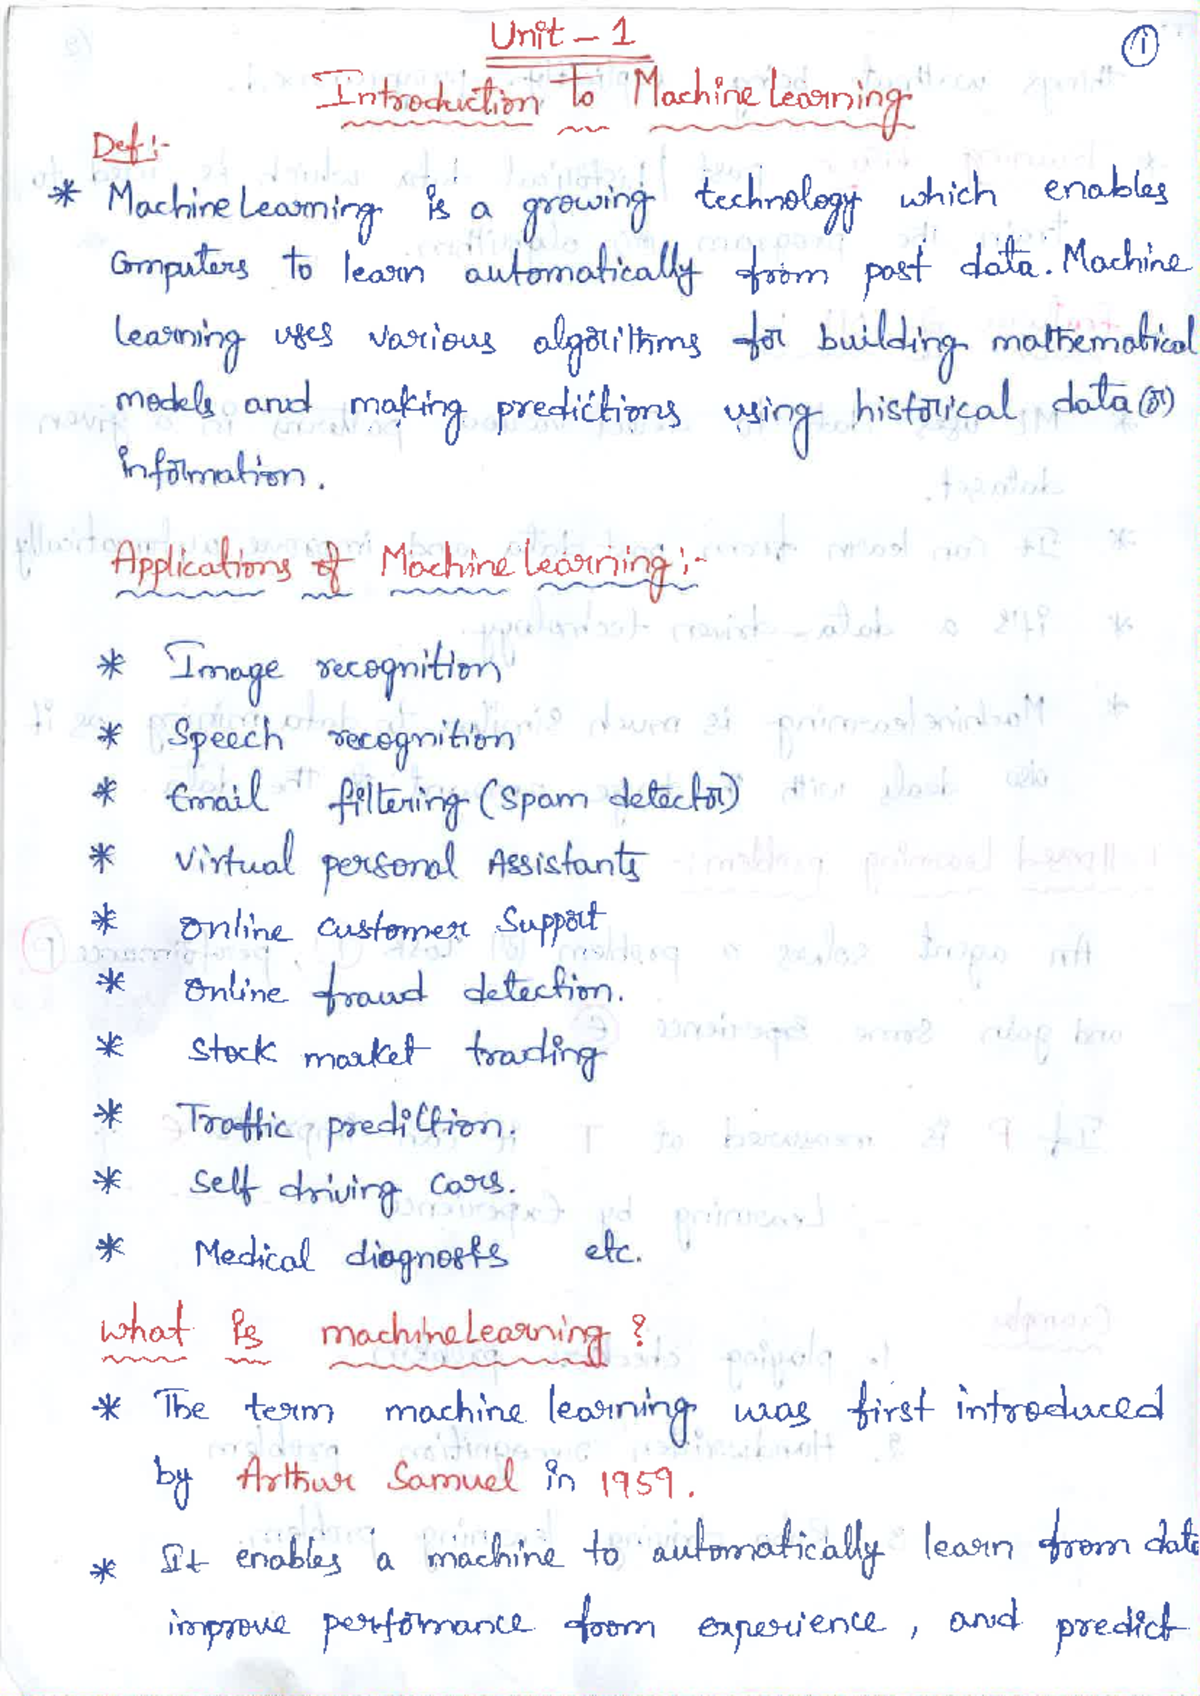 Unit - 1
1
Introduction to Machine Learning
Def :-
* Machine Learning is a growing technology which enables
Computers to learn automatically from past data. Machine
learning uses various algorithms for building mathematical
models and making predictions using historical data (or)
information.
Applications of Machine Learning :-
* Image recognition
* Speech recognition
* Email filtering (Spam detector)
* Virtual personal Assistants
* Online customer Support
* Online fraud detection.
* Stock market trading
* Traffic prediction.
* Self driving cars.
* Medical diagnosis etc.
What is machine Learning ?
* The term machine learning was first introduced
by Arthur Samuel in 1959.
* It enables a machine to automatically learn from data
improve performance from experience, and predict